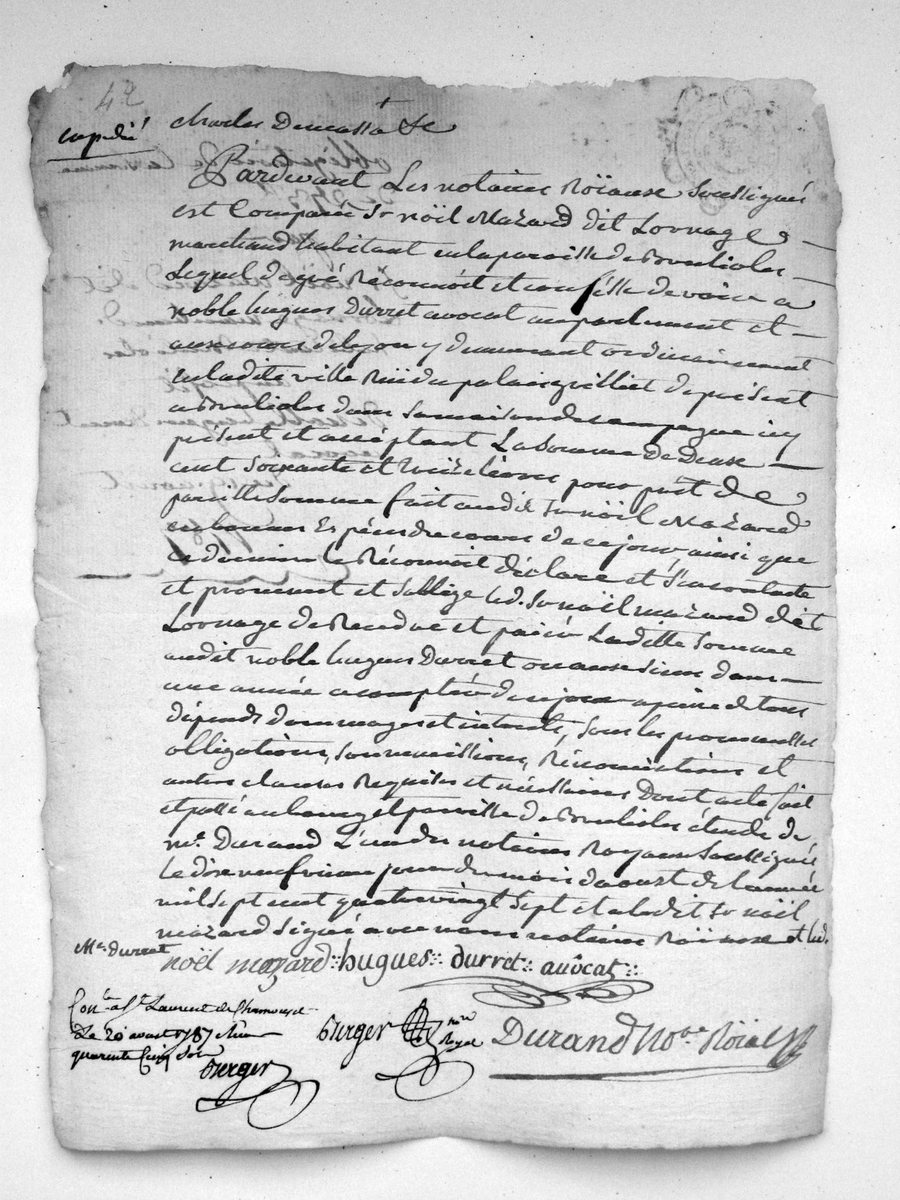 42
expédié
charles Demassa &c
Pardevant Les notaires Roïaux Soussignés
est Comparu Sr noël Mazard dit Lornage
marchand habitant en la paroisse de
Lequel de gré Reconnoit et confesse devoir a
noble hugues Durret avocat en parlement et
aux cours de Lyon y demeurant ordinairement
en ladite ville Rüe du palais grilliet de présent
a dans sa maison de campagne icy
présent et acceptant La Somme De Deux
cent Soixante et treize livres pour prêt de
pareille Somme fait audit Sr Noël Mazard
en bonnes Espéces de cours de ce jour ainsi que
ce dernier le Réconnoit déclare et s'en contente
et promet et s'oblige led. Sr noël mazard dit
Lornage de Rendre et païer Laditte Somme
audit noble hugues Durret ou aux siens dans
une année a compter de ce jour a peine de tous
dépends dommages et interets, sous les promesses
obligations, soumissions, Rénonciations et
autres clauses Requises et nécéssaires Dont acte fait
et passé au bourg et paroisse de étude de
me. Durand L'un des notaires Royaux Soussignés
le dix neuf jour du mois d'aoust de l'année
mil sept cent quatre vingt sept et a ledit Sr noël
mazard signé avec nous notaires Roïaux et led.
Me. Durret
noël mazard hugues durret avôcat
Conlé a St Laurent de Chamousset
Le 20 aoust 1787 Reçu
quarente Cinq Sols
Burger
Burger nre Royal
Durand Nore Roïal